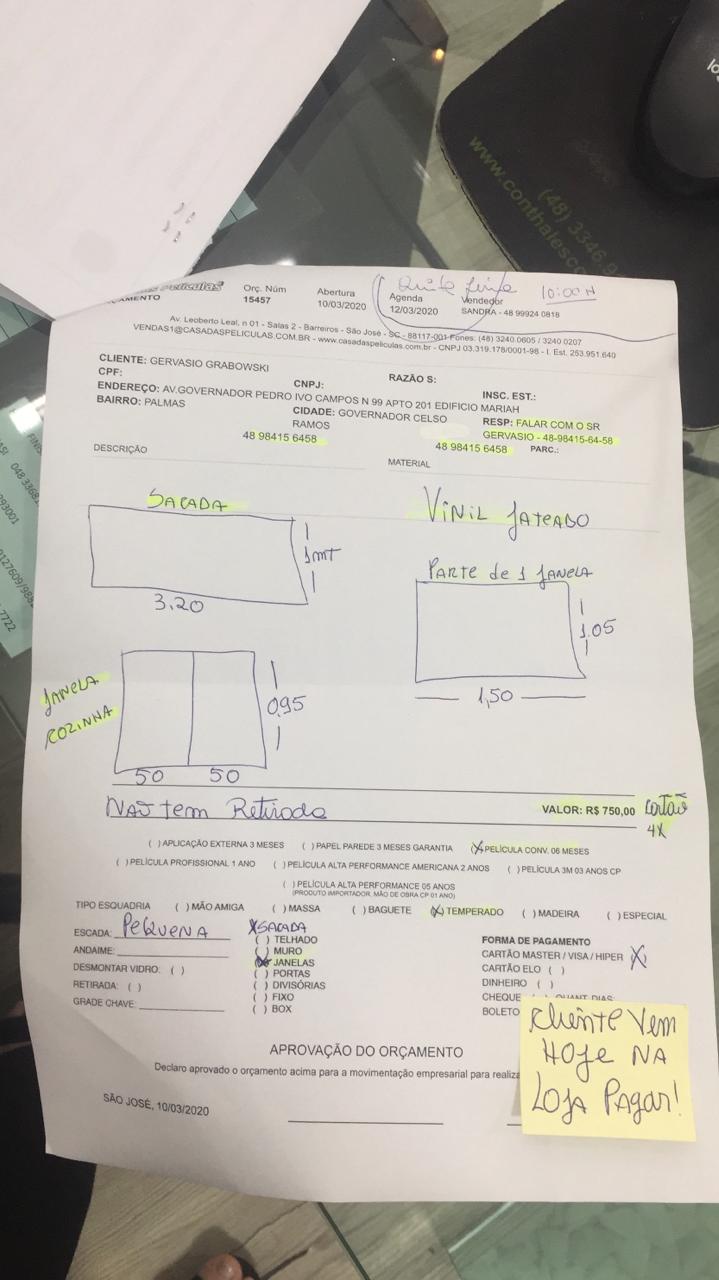 Películas
Orç. Núm
Abertura
Agenda
Vendedor
ORÇAMENTO
15457
10/03/2020
12/03/2020
SANDRA - 48 99924 0818
Quinta feira
10:00 H
Av. Leoberto Leal, n 01 - Salas 2 - Barreiros - São José - SC - 88117-001 Fones: (48) 3240.0605 / 3240 0207
VENDAS1@CASADASPELICULAS.COM.BR - www.casadaspeliculas.com.br - CNPJ 03.319.178/0001-98 - I. Est. 253.951.640
CLIENTE: GERVASIO GRABOWSKI
RAZÃO S:
CPF:
CNPJ:
INSC. EST.:
ENDEREÇO: AV.GOVERNADOR PEDRO IVO CAMPOS N 99 APTO 201 EDIFICIO MARIAH
BAIRRO: PALMAS
CIDADE: GOVERNADOR CELSO RAMOS
RESP: FALAR COM O SR
GERVASIO - 48-98415-64-58
48 98415 6458
48 98415 6458
PARC.:
DESCRIÇÃO
MATERIAL
SACADA
VINIL JATEADO
1mt
3,20
PARTE de 1 JANELA
1.05
1,50
JANELA
COZINHA
0,95
50
50
NÃO tem Retirada
VALOR: R$ 750,00
Cartão
4X
( ) APLICAÇÃO EXTERNA 3 MESES
( ) PAPEL PAREDE 3 MESES GARANTIA
(X) PELÍCULA CONV. 06 MESES
( ) PELÍCULA PROFISSIONAL 1 ANO
( ) PELÍCULA ALTA PERFORMANCE AMERICANA 2 ANOS
( ) PELÍCULA 3M 03 ANOS CP
( ) PELÍCULA ALTA PERFORMANCE 05 ANOS
(PRODUTO IMPORTADOR, MÃO DE OBRA CP 01 ANO)
TIPO ESQUADRIA
( ) MÃO AMIGA
( ) MASSA
( ) BAGUETE
(X) TEMPERADO
( ) MADEIRA
( ) ESPECIAL
ESCADA: PEQUENA
ANDAIME:
DESMONTAR VIDRO: ( )
RETIRADA: ( )
GRADE CHAVE:
X SACADA
( ) TELHADO
( ) MURO
(X) JANELAS
( ) PORTAS
( ) DIVISÓRIAS
( ) FIXO
( ) BOX
FORMA DE PAGAMENTO
CARTÃO MASTER / VISA / HIPER X
CARTÃO ELO ( )
DINHEIRO ( )
CHEQUE ( ) QUANT DIAS:
BOLETO
Cliente Vem
HOJE NA
LOJA Pagar!
APROVAÇÃO DO ORÇAMENTO
Declaro aprovado o orçamento acima para a movimentação empresarial para realiza
SÃO JOSÉ, 10/03/2020
www.conthalesco
(48) 3346.9